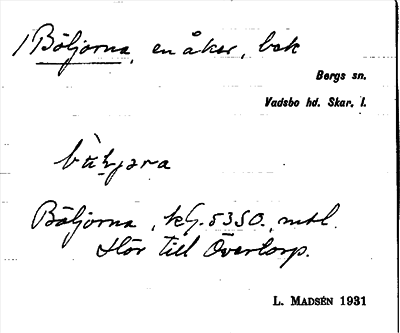 1 Böljorna, en åker, bok
Bergs sn.
Vadsbo hd. Skar. l.
Böljorna, kG. 5350., mtl.
Hör till Övertorp.
L. MADSÉN 1931